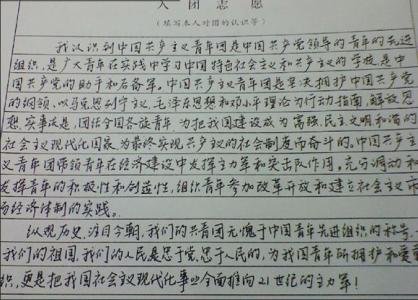 入团志愿
（填写本人对团的认识等）
我认识到中国共产主义青年团是中国共产党领导的青年的先进
组织，是广大青年在实践中学习中国特色社会主义和共产主义的学校是中
国共产党的助手和后备军。中国共产主义青年团是坚决拥护中国共产党
的纲领，以马克思列宁主义，毛泽东思想和邓小平理论为行动指南，解放思
想，实事求是，团结全国各族青年，为把我国建设成为富强，民主文明和谐的
社会主义现代化国家，为最终实现共产主义的社会制度而奋斗的。中国共产主
义青年团带领青年在经济建设中发挥主力军和突击队作用。充分调动和
发挥青年的积极性和创造性，组织青年参加改革开放和建立社会主义市
场经济体制的实践。
纵观历史，注目今朝，我们的共青团无愧于中国青年先进组织的称号，
我们的祖国，我们的人民是忠于党，忠于人民的，为我国青年所拥护和爱戴
织，更是把我国社会主义现代化事业全面推向21世纪的主力军！